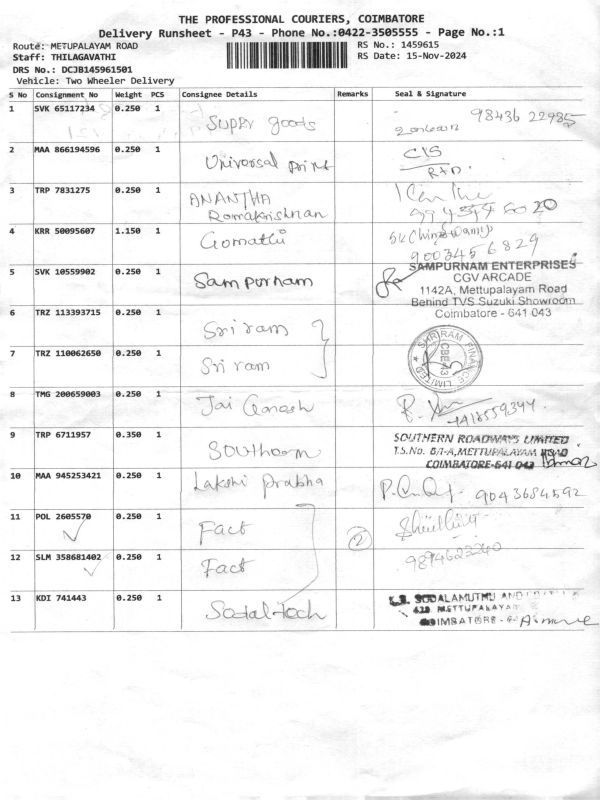 THE PROFESSIONAL COURIERS, COIMBATORE
Delivery Runsheet - P43 - Phone No.:0422-3505555 - Page No.:1
Route: METUPALAYAM ROAD
RS No.: 1459615
Staff: THILAGAVATHI
RS Date: 15-Nov-2024
DRS No.: DCJB145961501
Vehicle: Two Wheeler Delivery
S No Consignment No Weight PCS Consignee Details Remarks Seal & Signature
1 SVK 65117234 0.250 1 Super goods 98436 22985
2 MAA 866194596 0.250 1 Universal print C/S
3 TRP 7831275 0.250 1 ANANTHA
Ramakrishnan
4 KRR 50095607 1.150 1 Gomathi
9003456829
5 SVK 10559902 0.250 1 Sampurnam SAMPURNAM ENTERPRISES
CGV ARCADE
1142A, Mettupalayam Road
Behind TVS Suzuki Showroom
Coimbatore - 641 043
6 TRZ 113393715 0.250 1 Sri ram
SHRIRAM FINANCE LIMITED
CBE-43
7 TRZ 110062650 0.250 1 Sri ram
8 TMG 200659003 0.250 1 Jai Ganesh
9 TRP 6711957 0.350 1 Southern SOUTHERN ROADWAYS LIMITED
T.S.No. 8/1-A, METTUPALAYAM ROAD
COIMBATORE-641 043
10 MAA 945253421 0.250 1 Lakshi Prabha 9043684592
11 POL 2605570 0.250 1 Fact 2
12 SLM 358681402 0.250 1 Fact 9894623240
13 KDI 741443 0.250 1 Sodal tech SODALAMUTHU AND
METTUPALAYAM
COIMBATORE